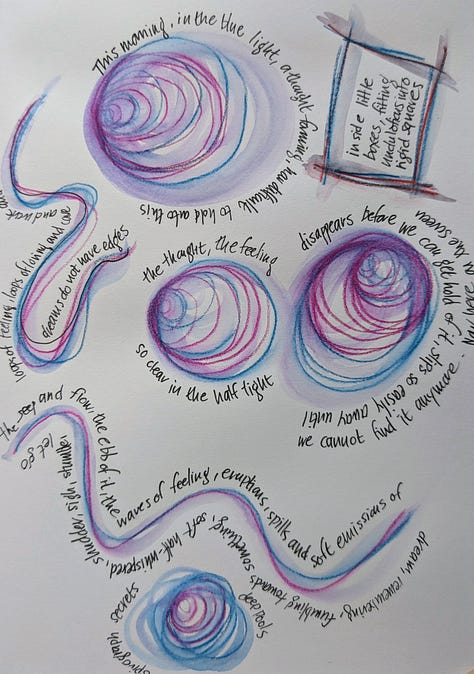 This morning, in the blue light, a thought forming, how difficult to hold onto this
inside little
boxes, fitting
undulations into
rigid squares
the thought, the feeling
so clear in the half light
disappears before we can get hold of it, slips so easily away until
we cannot find it anymore.
loops of feeling, loops of loving and care
and work and
dreams do not have edges
the seep and flow, the ebb of it, the waves of feeling, eruptions, spills and soft emissions of
let go
stumble, sigh, shudder, soft half-whispered, something, fumbling towards
dream, remembering,
deep pools
spirograph secrets